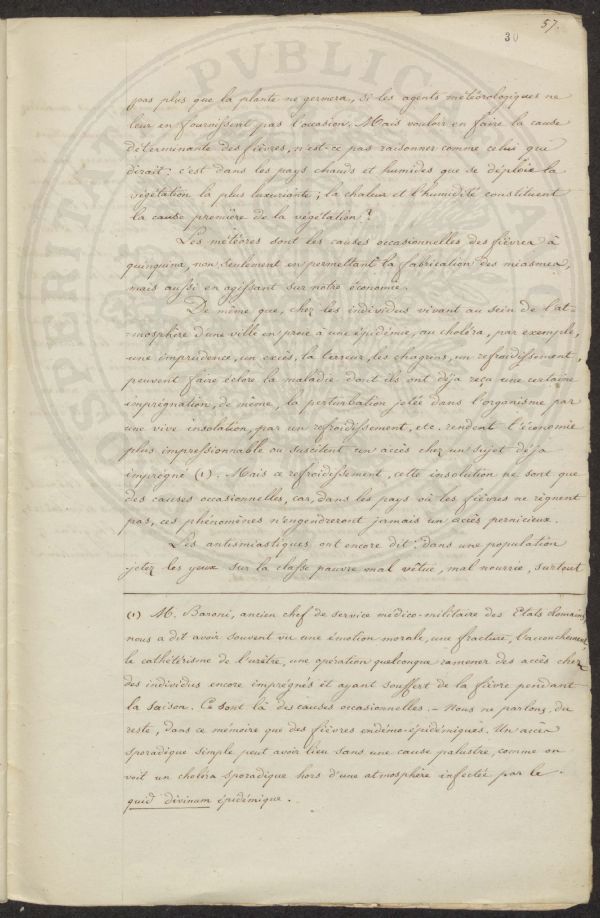 57.
30
pas plus que la plante ne germera, si les agents météorologiques ne
leur en fournissent pas l'occasion. Mais vouloir en faire la cause
déterminante des fièvres, n'est-ce pas raisonner comme celui que
dirait: c'est dans les pays chauds et humides que se déploie la
végétation la plus luxuriante; la chaleur et l'humidité constituent
la cause première de la végétation?
Les météores sont les causes occasionnelles des fièvres à
quinquina, non seulement en permettant la fabrication des miasmes,
mais aussi en agissant sur notre économie.
De même que, chez les individus vivant au sein de l'at-
-mosphère d'une ville en proie à une épidémie, au choléra, par exemple,
une imprudence, un excès, la terreur, les chagrins, un refroidissement,
peuvent faire éclore la maladie dont ils ont déja reçu une certaine
imprégnation, de même, la perturbation jetée dans l'organisme par
une vive insolation, par un refroidissement, etc. rendent l'économie
plus impressionnable ou suscitent un accès chez un sujet déja
imprégné (1). Mais ce refroidissement, cette insolation ne sont que
des causes occasionnelles, car, dans les pays où les fièvres ne règnent
pas, ces phénomènes n'engendreront jamais un accès pernicieux.
Les antimiastiques ont encore dit: dans une population
jetez les yeux sur la classe pauvre mal vêtue, mal nourrie, surtout
(1) M. Baroni, ancien chef de service médico-militaire des Etats Romains
nous a dit avoir souvent vu une émotion morale, une fracture, l'accouchement,
le cathétérisme de l'urètre, une opération quelconque ramener des accès chez
des individus encore imprégnés et ayant souffert de la fièvre pendant
la saison. Ce sont là des causes occasionnelles. - Nous ne parlons, du
reste, dans ce mémoire que des fièvres endémo-épidémiques. Un accès
sporadique simple peut avoir lieu sans une cause palustre, comme on
voit un choléra sporadique hors d'une atmosphère infectée par le
quid divinum épidémique.
PVBLICA